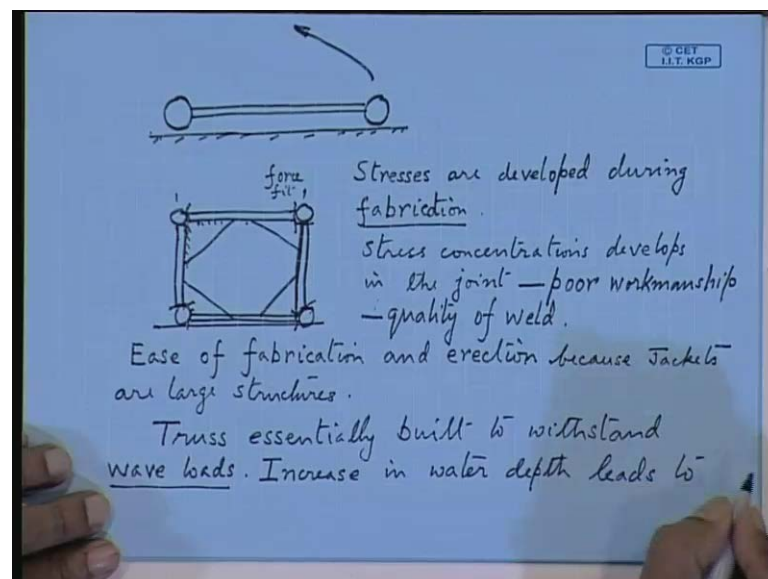 © CET
I.I.T. KGP
force
fit
Stresses are developed during
fabrication.
Stress concentrations develops
in the joint — poor workmanship
— quality of weld.
Ease of fabrication and erection because Jackets
are large structures.
Truss essentially built to withstand
wave loads. Increase in water depth leads to